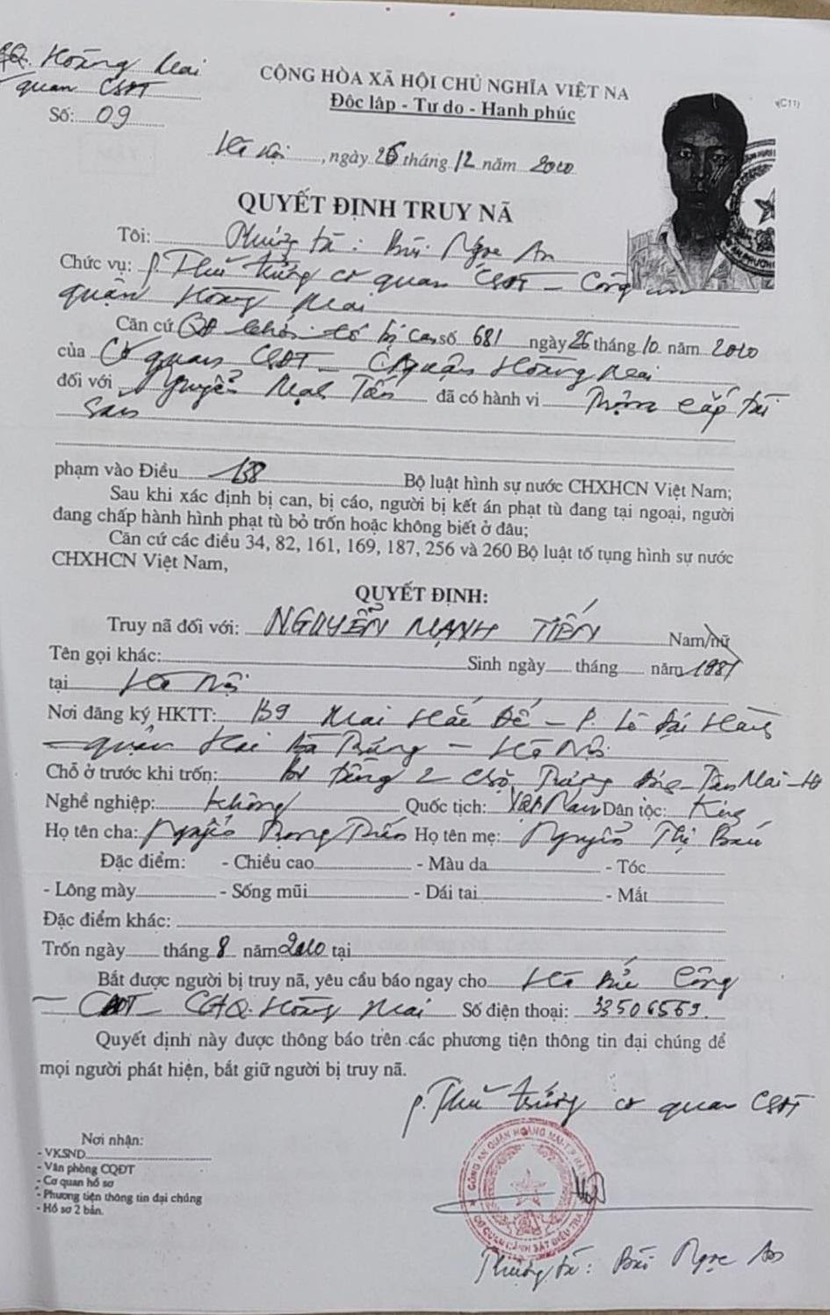 CQ. Hoàng Mai
quan CSĐT
Số: 09
CỘNG HÒA XÃ HỘI CHỦ NGHĨA VIỆT NA
Độc lập - Tự do - Hạnh phúc
(C11)
Hà Nội, ngày 26 tháng 12 năm 2010
QUYẾT ĐỊNH TRUY NÃ
Tôi: Thượng tá: Bùi Ngọc An
Chức vụ: P. Thủ trưởng cơ quan CSĐT - Công an
quận Hoàng Mai
Căn cứ QĐ khởi tố bị can số 681 ngày 26 tháng 10 năm 2010
của Cơ quan CSĐT - CA quận Hoàng Mai
đối với Nguyễn Mạnh Tiến đã có hành vi Trộm cắp tài
sản
phạm vào Điều 138 Bộ luật hình sự nước CHXHCN Việt Nam;
Sau khi xác định bị can, bị cáo, người bị kết án phạt tù đang tại ngoại, người
đang chấp hành hình phạt tù bỏ trốn hoặc không biết ở đâu;
Căn cứ các điều 34, 82, 161, 169, 187, 256 và 260 Bộ luật tố tụng hình sự nước
CHXHCN Việt Nam,
QUYẾT ĐỊNH:
Truy nã đối với: NGUYỄN MẠNH TIẾN Nam/nữ
Tên gọi khác: Sinh ngày tháng năm 1981
tại Hà Nội
Nơi đăng ký HKTT: B9 Mai Hắc Đế - P. Lê Đại Hành
- quận Hai Bà Trưng - Hà Nội
Chỗ ở trước khi trốn: tầng 2 chợ Trương Định - Tân Mai - HN
Nghề nghiệp: không Quốc tịch: Việt Nam Dân tộc: Kinh
Họ tên cha: Nguyễn Trọng Họ tên mẹ: Nguyễn Thị
Đặc điểm: - Chiều cao - Màu da - Tóc
- Lông mày - Sống mũi - Dái tai - Mắt
Đặc điểm khác:
Trốn ngày tháng 8 năm 2010 tại
Bắt được người bị truy nã, yêu cầu báo ngay cho Công
- CSĐT - CAQ. Hoàng Mai Số điện thoại: 33506569.
Quyết định này được thông báo trên các phương tiện thông tin đại chúng để
mọi người phát hiện, bắt giữ người bị truy nã.
P. Thủ trưởng cơ quan CSĐT
Nơi nhận:
- VKSND
- Văn phòng CQĐT
- Cơ quan hồ sơ
- Phương tiện thông tin đại chúng
- Hồ sơ 2 bản.
CÔNG AN QUẬN HOÀNG MAI - T.P HÀ NỘI
CƠ QUAN CẢNH SÁT ĐIỀU TRA
Thượng tá: Bùi Ngọc An